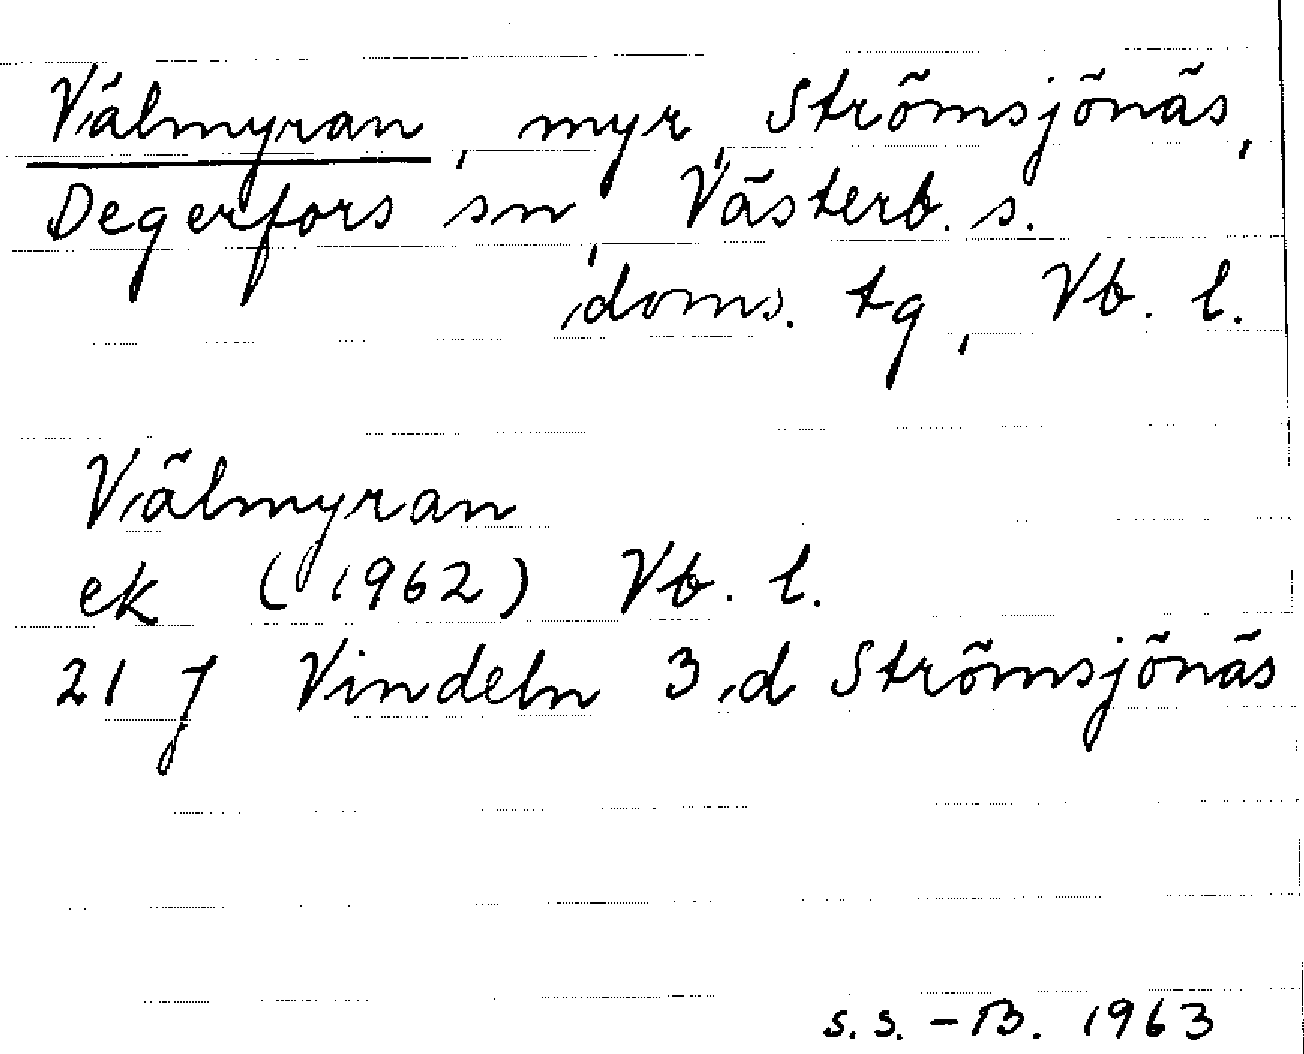 Välmyran, myr, Strömsjönäs,
Degerfors sn, Västerb. s.
doms. tg, Vb. l.
Välmyran
ek (1962) Vb. l.
21 J Vindeln 3 d Strömsjönäs
S.S.-B. 1963